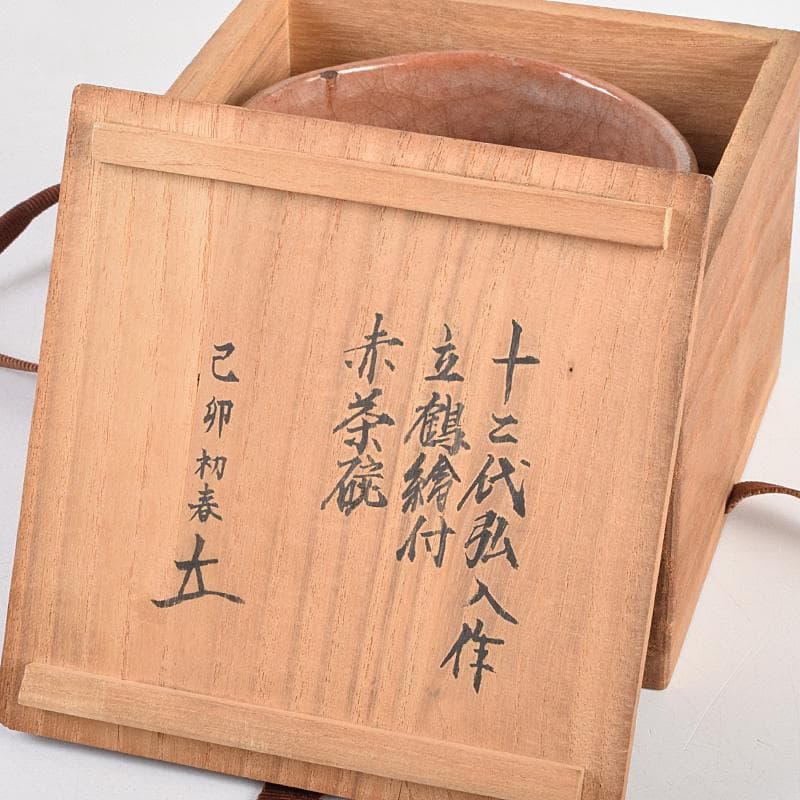 十二代弘入作
立鶴繪付
赤茶碗
己卯初春